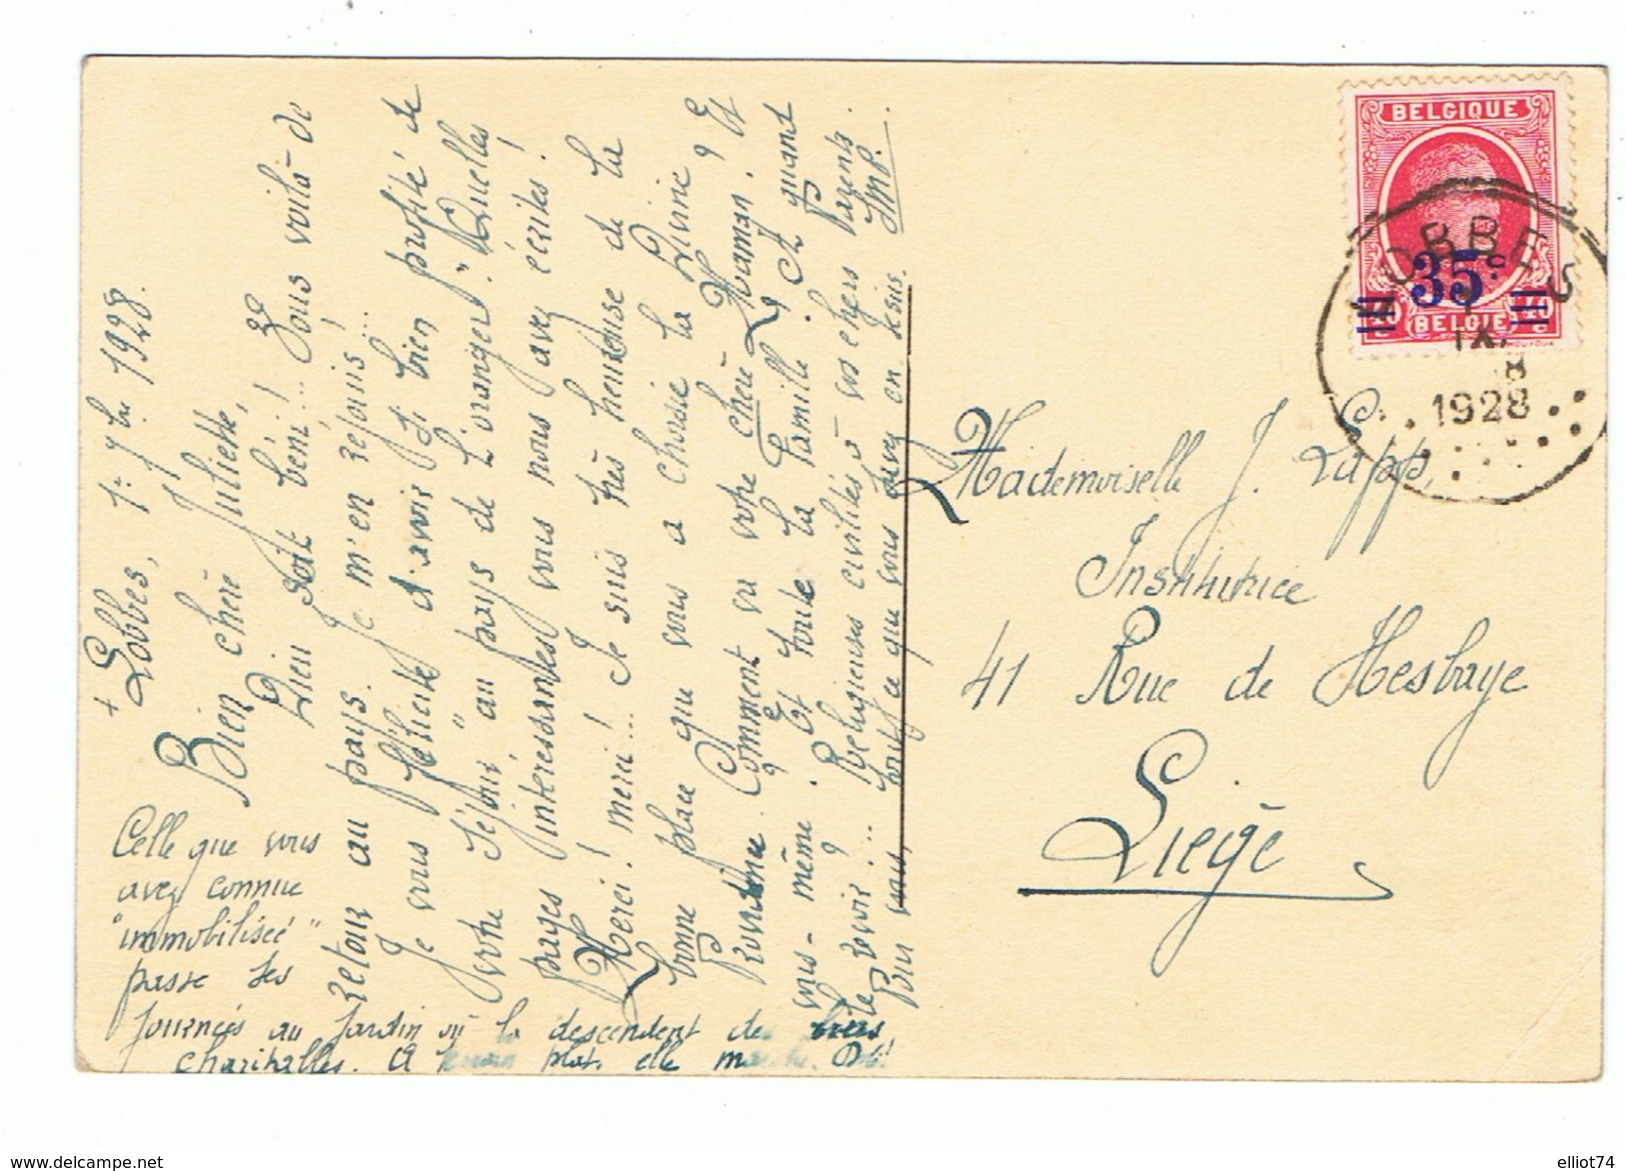 + Lobbes, 1r 7bre 1928.
Bien chère Juliette,
Dieu soit béni!... Vous voilà de
retour au pays. Je m'en réjouis!...
Je vous félicite d'avoir si bien profité de
votre séjour "au pays de l'oranger". Quelles
pages intéressantes vous nous avez écrites!
Merci! merci!... Je suis très heureuse de la
bonne place que vous a choisie la Divine
Providence. Comment va votre chère Maman? Et
vous-même? Et toute la Famille? Et quand
le revoir?... Religieuses civilités à vos chers Parents.
Bien vous, tout ce que vous savez en Jésus. Imp.
Celle que vous
avez connue
"immobilisée"
passe ses
journées au jardin où la descendent des bras
charitables. A plat, elle
Mademoiselle J. Lapp,
Institutrice
41 Rue de Hesbaye
Liège
BELGIQUE
35c
40 BELGIE 40
LOBBES
1
IX
18
1928
www.delcampe.net
elliot74